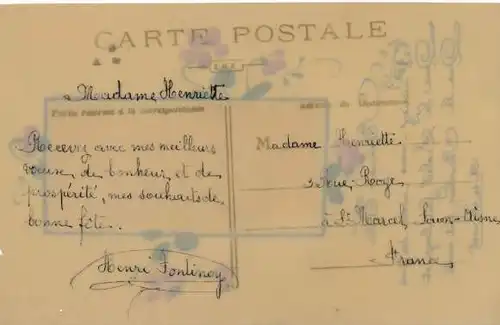 CARTE POSTALE
à Madame Henriette
Partie réservée à la correspondance
Adresse du destinataire
Recevez avec mes meilleurs
vœux de bonheur et de
prospérité, mes souhaits de
bonne fête.
Henri Fontinoy
Madame Henriette
3 Rue
à St Marcel,
France